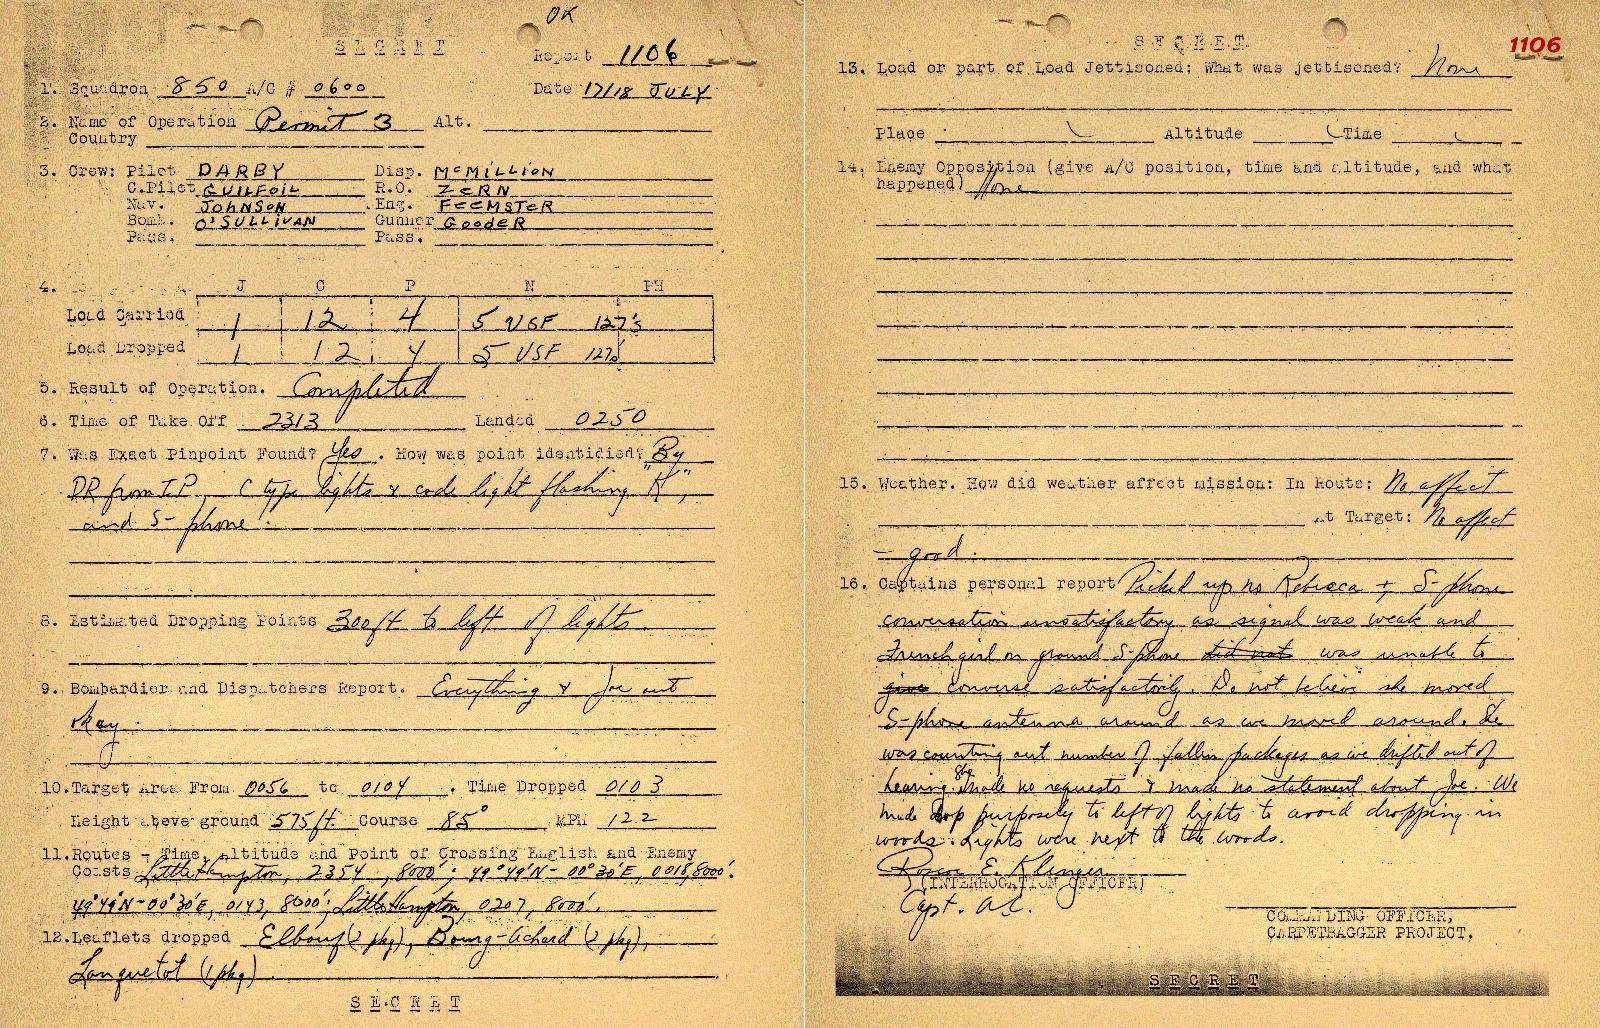 OK
SECRET
Report 1106
1. Squadron 850 A/C # 0600 Date 17/18 JULY
2. Name of Operation Permit 3 Alt.
Country
3. Crew: Pilot DARBY Disp. McMILLION
C.Pilot GUILFOIL R.O. ZERN
Nav. JOHNSON Eng. FEEMSTER
Bomb. O'SULLIVAN Gunner GOODER
Pass. Pass.
4. J C P N PH
Load Carried 1 12 4 5 USF 127's
Load Dropped 1 12 4 5 USF 127s
5. Result of Operation. Completed
6. Time of Take Off 2313 Landed 0250
7. Was Exact Pinpoint Found? Yes. How was point identidied? By
DR from I.P., C type lights & code light flashing "K",
and S-phone.
8. Estimated Dropping Points 300ft to left of lights.
9. Bombardier and Dispatchers Report. Everything & Joe out
okay.
10. Target Area From 0056 to 0104. Time Dropped 0103
Height above ground 575ft. Course 85° MPH 122
11. Routes - Time, altitude and Point of Crossing English and Enemy
Coasts LittleHampton, 2354, 8000'; 49°49'N-00°30'E, 0018, 8000'.
49°49'N-00°30'E, 0143, 8000'; LittleHampton, 0207, 8000'.
12. Leaflets dropped Elbouf (2 pkg), Bourg-Achard (2 pkg),
Lanquetot (1 pkg).
SECRET
SECRET
1106
13. Load or part of Load Jettisoned: What was jettisoned? None
Place Altitude Time
14. Enemy Opposition (give A/C position, time and altitude, and what
happened) None
15. Weather. How did weather affect mission: In Route: No affect
At Target: No affect
- good.
16. Captains personal report Picked up no Rebecca + S-phone
conversation unsatisfactory as signal was weak and
French girl on ground S-phone did not was unable to
give converse satisfactorily. Do not believe she moved
S-phone antenna around as we moved around. She
was counting out number of fallen packages as we drifted out of
hearing. She made no requests & made no statement about Joe. We
made drop purposely to left of lights to avoid dropping in
woods. Lights were next to the woods.
Roscoe E. Klinger
(INTERROGATION OFFICER)
Capt. A.C.
COMMANDING OFFICER,
CARPETBAGGER PROJECT.
SECRET